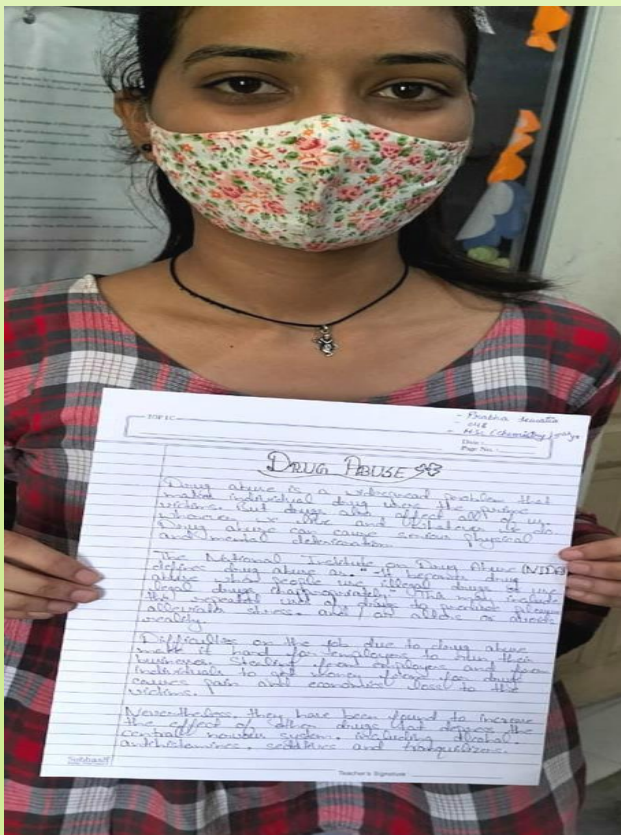 TOPIC
- Prabha
- 048
- MSc (Chemistry)
Date :
Page No. :
DRUG ABUSE
Drug abuse is a widespread problem that
individual drug users the prime
victims. But drugs also affect all of us.
whoever we are and whatever we do.
Drug abuse can cause serious physical
and mental deterioration.
The National Institute for Drug Abuse (NIDA)
defines drug abuse as "It becomes drug
abuse when people use illegal drugs or use
legal drugs inappropriately" This includes
the repeated use of drugs to produce pleasure
alleviate stress, and / or alters or avoids
reality.
Difficulties on the job due to drug abuse
make it hard for employers to run their
business. Stealing from employers and from
individuals to get money for drugs
causes pain and economical loss to the
victims.
Nevertheless, they have been found to increase
the effect of other drugs that depress the
central nervous system, including alcohol,
antihistamines, sedatives and tranquilizers.
Sundaram
Teacher's Signature